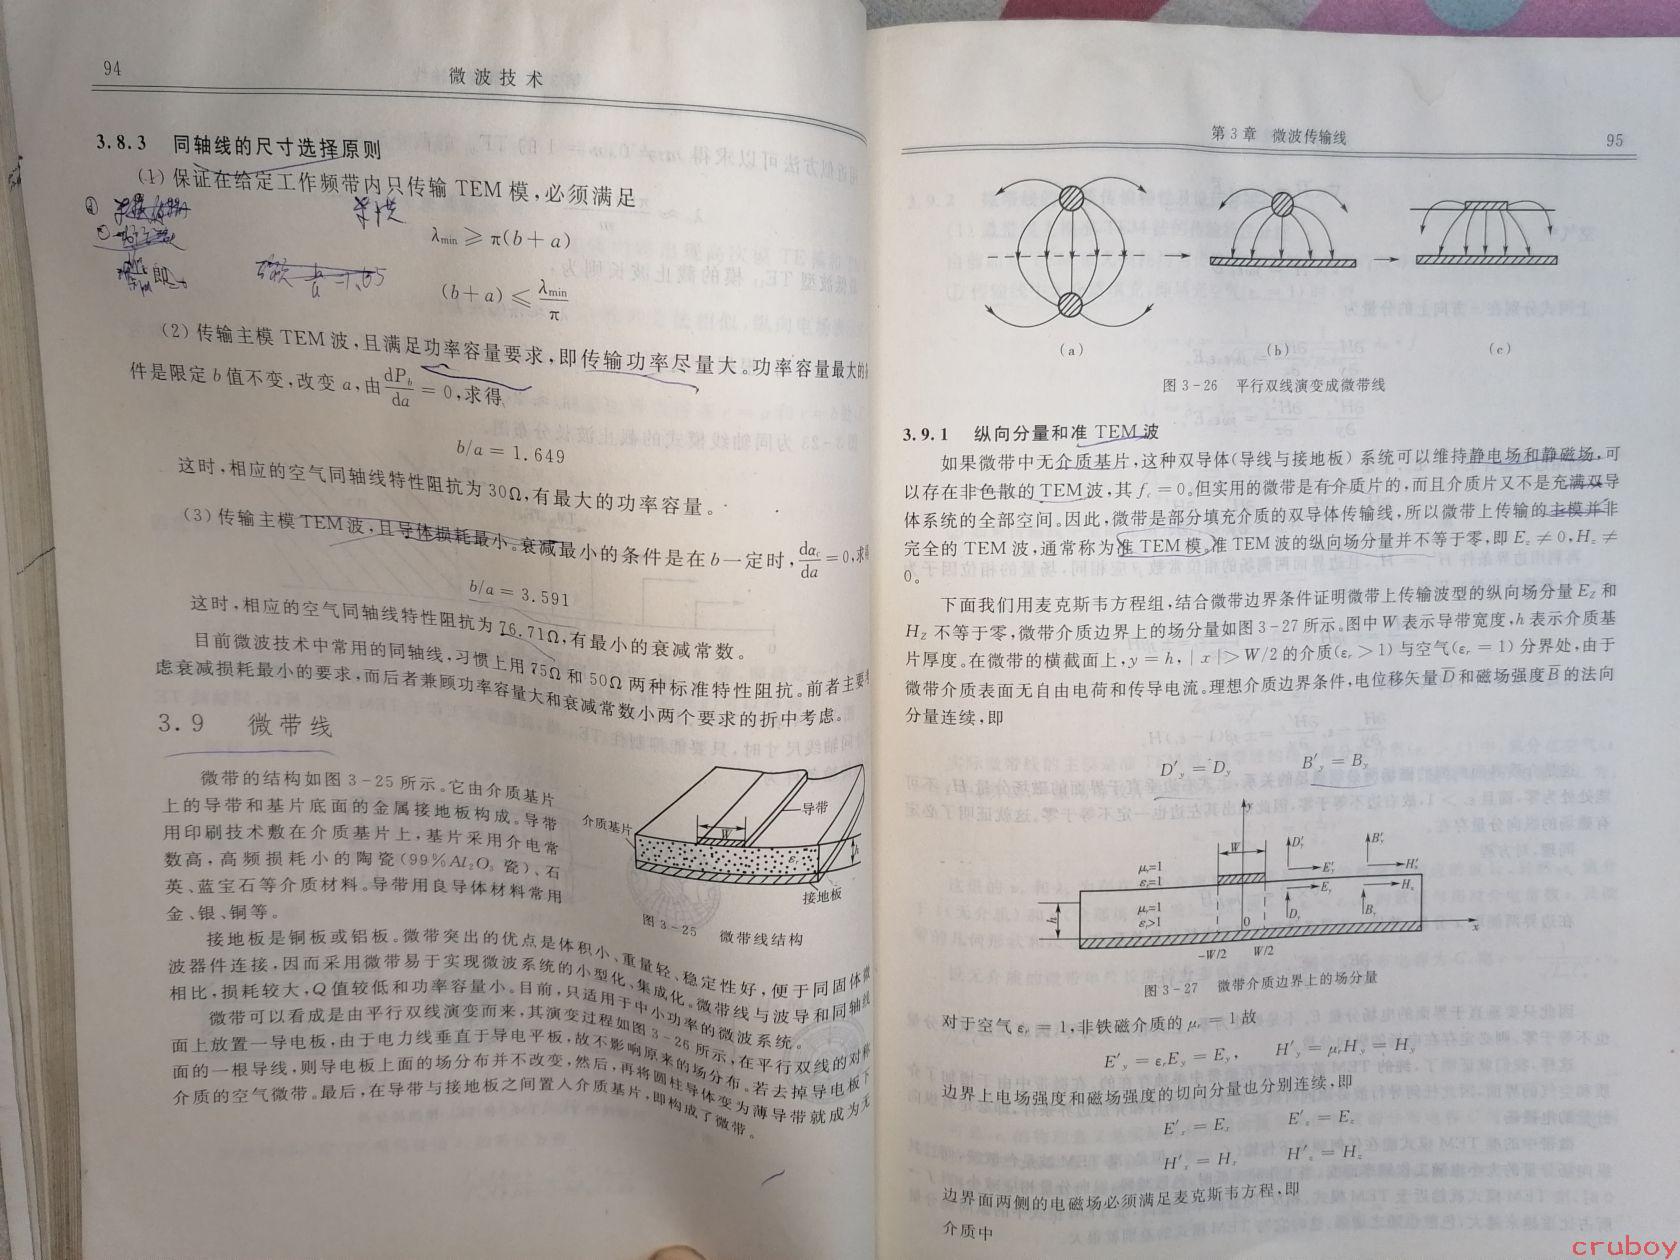 94
微波技术
3.8.3 同轴线的尺寸选择原则
(1) 保证在给定工作频带内只传输 TEM 模,必须满足
λmin ≥ π(b + a)
即
(b + a) ≤ λmin/π
(2) 传输主模 TEM 波,且满足功率容量要求,即传输功率尽量大。功率容量最大的
件是限定 b 值不变,改变 a,由 dPb/da = 0,求得
b/a = 1.649
这时,相应的空气同轴线特性阻抗为 30Ω,有最大的功率容量。
(3) 传输主模 TEM 波,且导体损耗最小。衰减最小的条件是在 b 一定时, dαc/da = 0,求
b/a = 3.591
这时,相应的空气同轴线特性阻抗为 76.71Ω,有最小的衰减常数。
目前微波技术中常用的同轴线,习惯上用 75Ω 和 50Ω 两种标准特性阻抗。前者主要
虑衰减损耗最小的要求,而后者兼顾功率容量大和衰减常数小两个要求的折中考虑。
3.9 微带线
微带的结构如图 3-25 所示。它由介质基片
上的导带和基片底面的金属接地板构成。导带
用印刷技术敷在介质基片上,基片采用介电常
数高,高频损耗小的陶瓷(99%Al₂O₃ 瓷)、石
英、蓝宝石等介质材料。导带用良导体材料常用
金、银、铜等。
介质基片
导带
W
εr
h
接地板
图 3-25 微带线结构
接地板是铜板或铝板。微带突出的优点是体积小、重量轻、稳定性好,便于同固体微
波器件连接,因而采用微带易于实现微波系统的小型化、集成化。微带线与波导和同轴线
相比,损耗较大,Q 值较低和功率容量小。目前,只适用于中小功率的微波系统。
微带可以看成是由平行双线演变而来,其演变过程如图 3-26 所示,在平行双线的对称
面上放置一导电板,由于电力线垂直于导电平板,故不影响原来的场分布。若去掉导电板下
面的一根导线,则导电板上面的场分布并不改变,然后,再将圆柱导体变为薄导带就成为无
介质的空气微带。最后,在导带与接地板之间置入介质基片,即构成了微带。
第 3 章 微波传输线
95
(a)
(b)
(c)
图 3-26 平行双线演变成微带线
3.9.1 纵向分量和准 TEM 波
如果微带中无介质基片,这种双导体(导线与接地板) 系统可以维持静电场和静磁场,可
以存在非色散的 TEM 波,其 fc = 0。但实用的微带是有介质片的,而且介质片又不是充满双导
体系统的全部空间。因此,微带是部分填充介质的双导体传输线,所以微带上传输的主模并非
完全的 TEM 波,通常称为准 TEM 模。准 TEM 波的纵向场分量并不等于零,即 Ez ≠ 0,Hz ≠
0。
下面我们用麦克斯韦方程组,结合微带边界条件证明微带上传输波型的纵向场分量 EZ 和
HZ 不等于零,微带介质边界上的场分量如图 3-27 所示。图中 W 表示导带宽度,h 表示介质基
片厚度。在微带的横截面上,y = h,| x |> W/2 的介质(εr > 1) 与空气(εr = 1) 分界处,由于
微带介质表面无自由电荷和传导电流。理想介质边界条件,电位移矢量 D̄ 和磁场强度 B̄ 的法向
分量连续,即
D′y = Dy B′y = By
y
W
D′y
B′y
μr=1
εr=1
E′x
H′x
Ex
Hx
μr=1
εr>1
h
Dy
By
0
x
-W/2 W/2
图 3-27 微带介质边界上的场分量
对于空气 εr = 1,非铁磁介质的 μr = 1 故
E′y = εrEy = Ey, H′y = μrHy = Hy
边界上电场强度和磁场强度的切向分量也分别连续,即
E′x = Ex E′z = Ez
H′x = Hx H′z = Hz
边界面两侧的电磁场必须满足麦克斯韦方程,即
介质中
cruboy